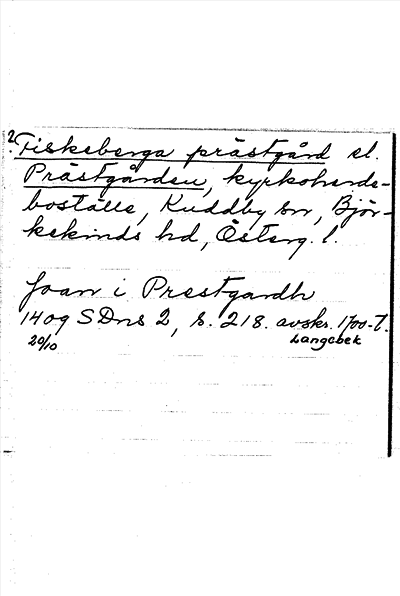 2. Fiskeberga prästgård el.
Prästgården, kyrkoherde-
boställe, Kuddby sn, Björ-
kekinds hd, Österg. l.
Joan i Prestgardh
1409 SDns 2, s. 218. avskr. 1700-t.
20/10 Langebek